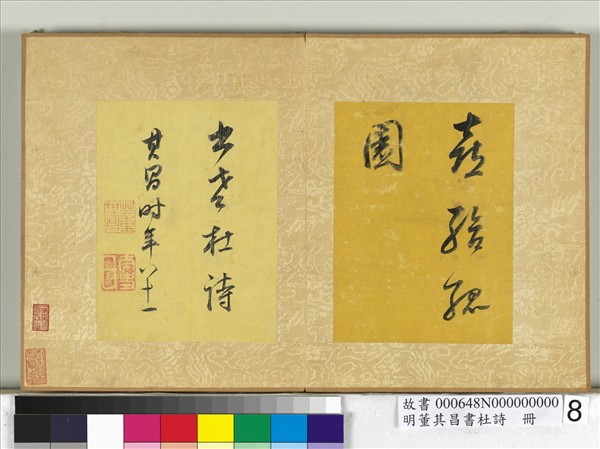 喜給孤
園
書老杜詩
其昌時年八十一
故書 000648N000000000
明董其昌書杜詩 冊
8